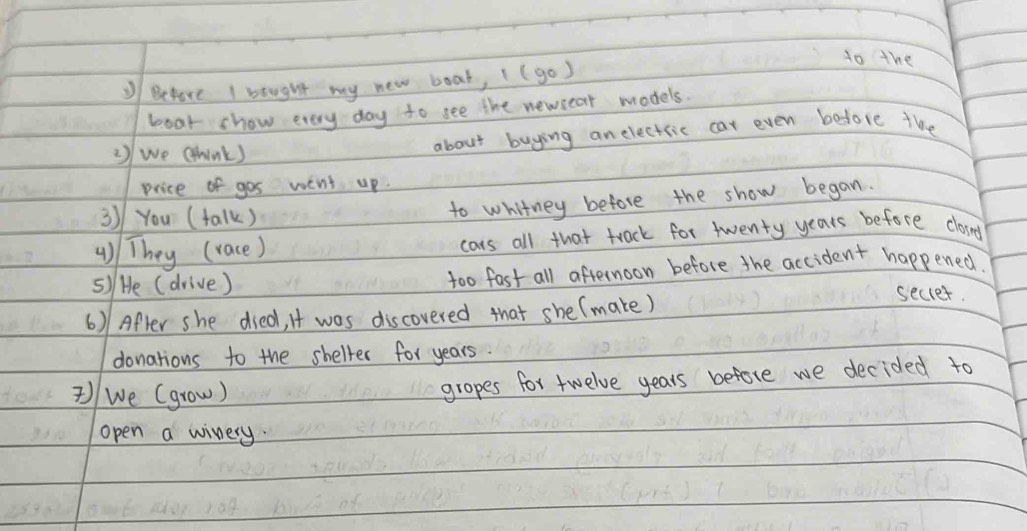 1) Before I bought my new boat, I (go) to the
boat show every day to see the newseat models.
2) We (think) about buying an electric car even before the
price of gas went up.
3) You (talk) to whitney before the show began.
4) They (race) cars all that track for twenty years before closed
5) He (drive) too fast all afternoon before the accident happened.
6) After she died, it was discovered that she (make) secret.
donations to the shelter for years.
7) We (grow) grapes for twelve years before we decided to
open a winery.